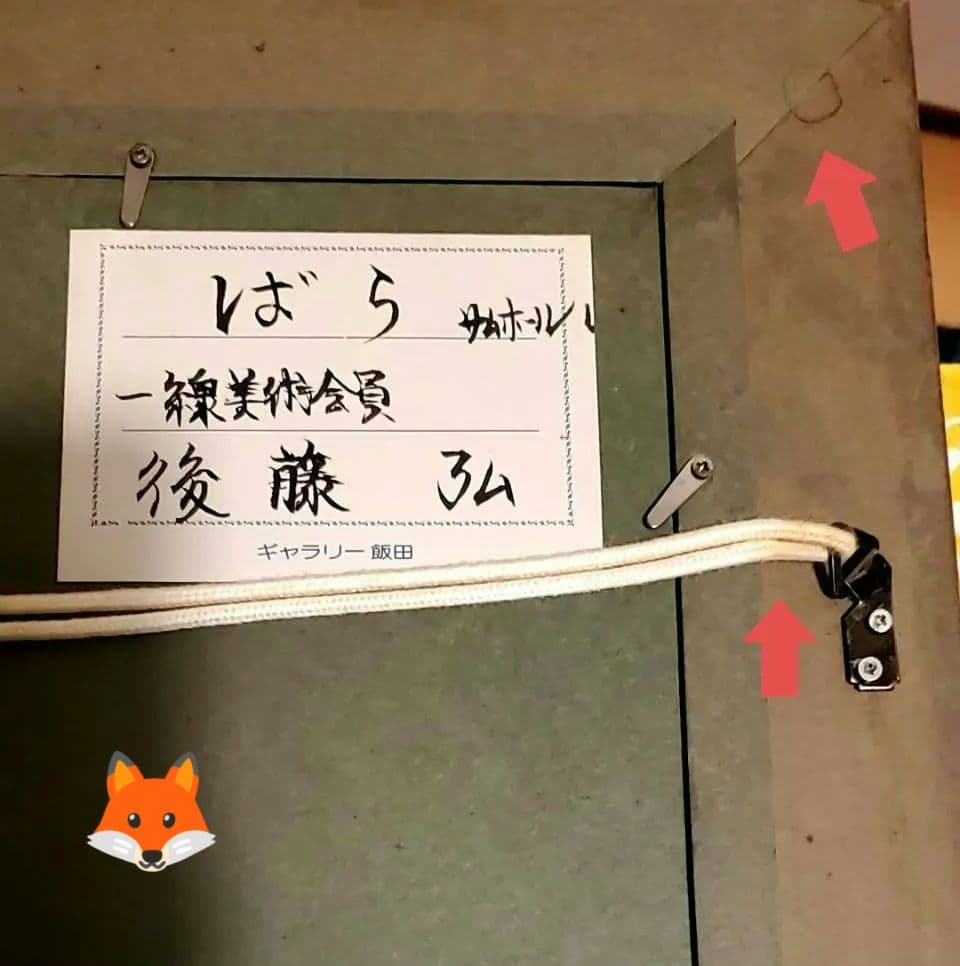 ばら サムホール
一線美術会員
後藤 弘
ギャラリー飯田